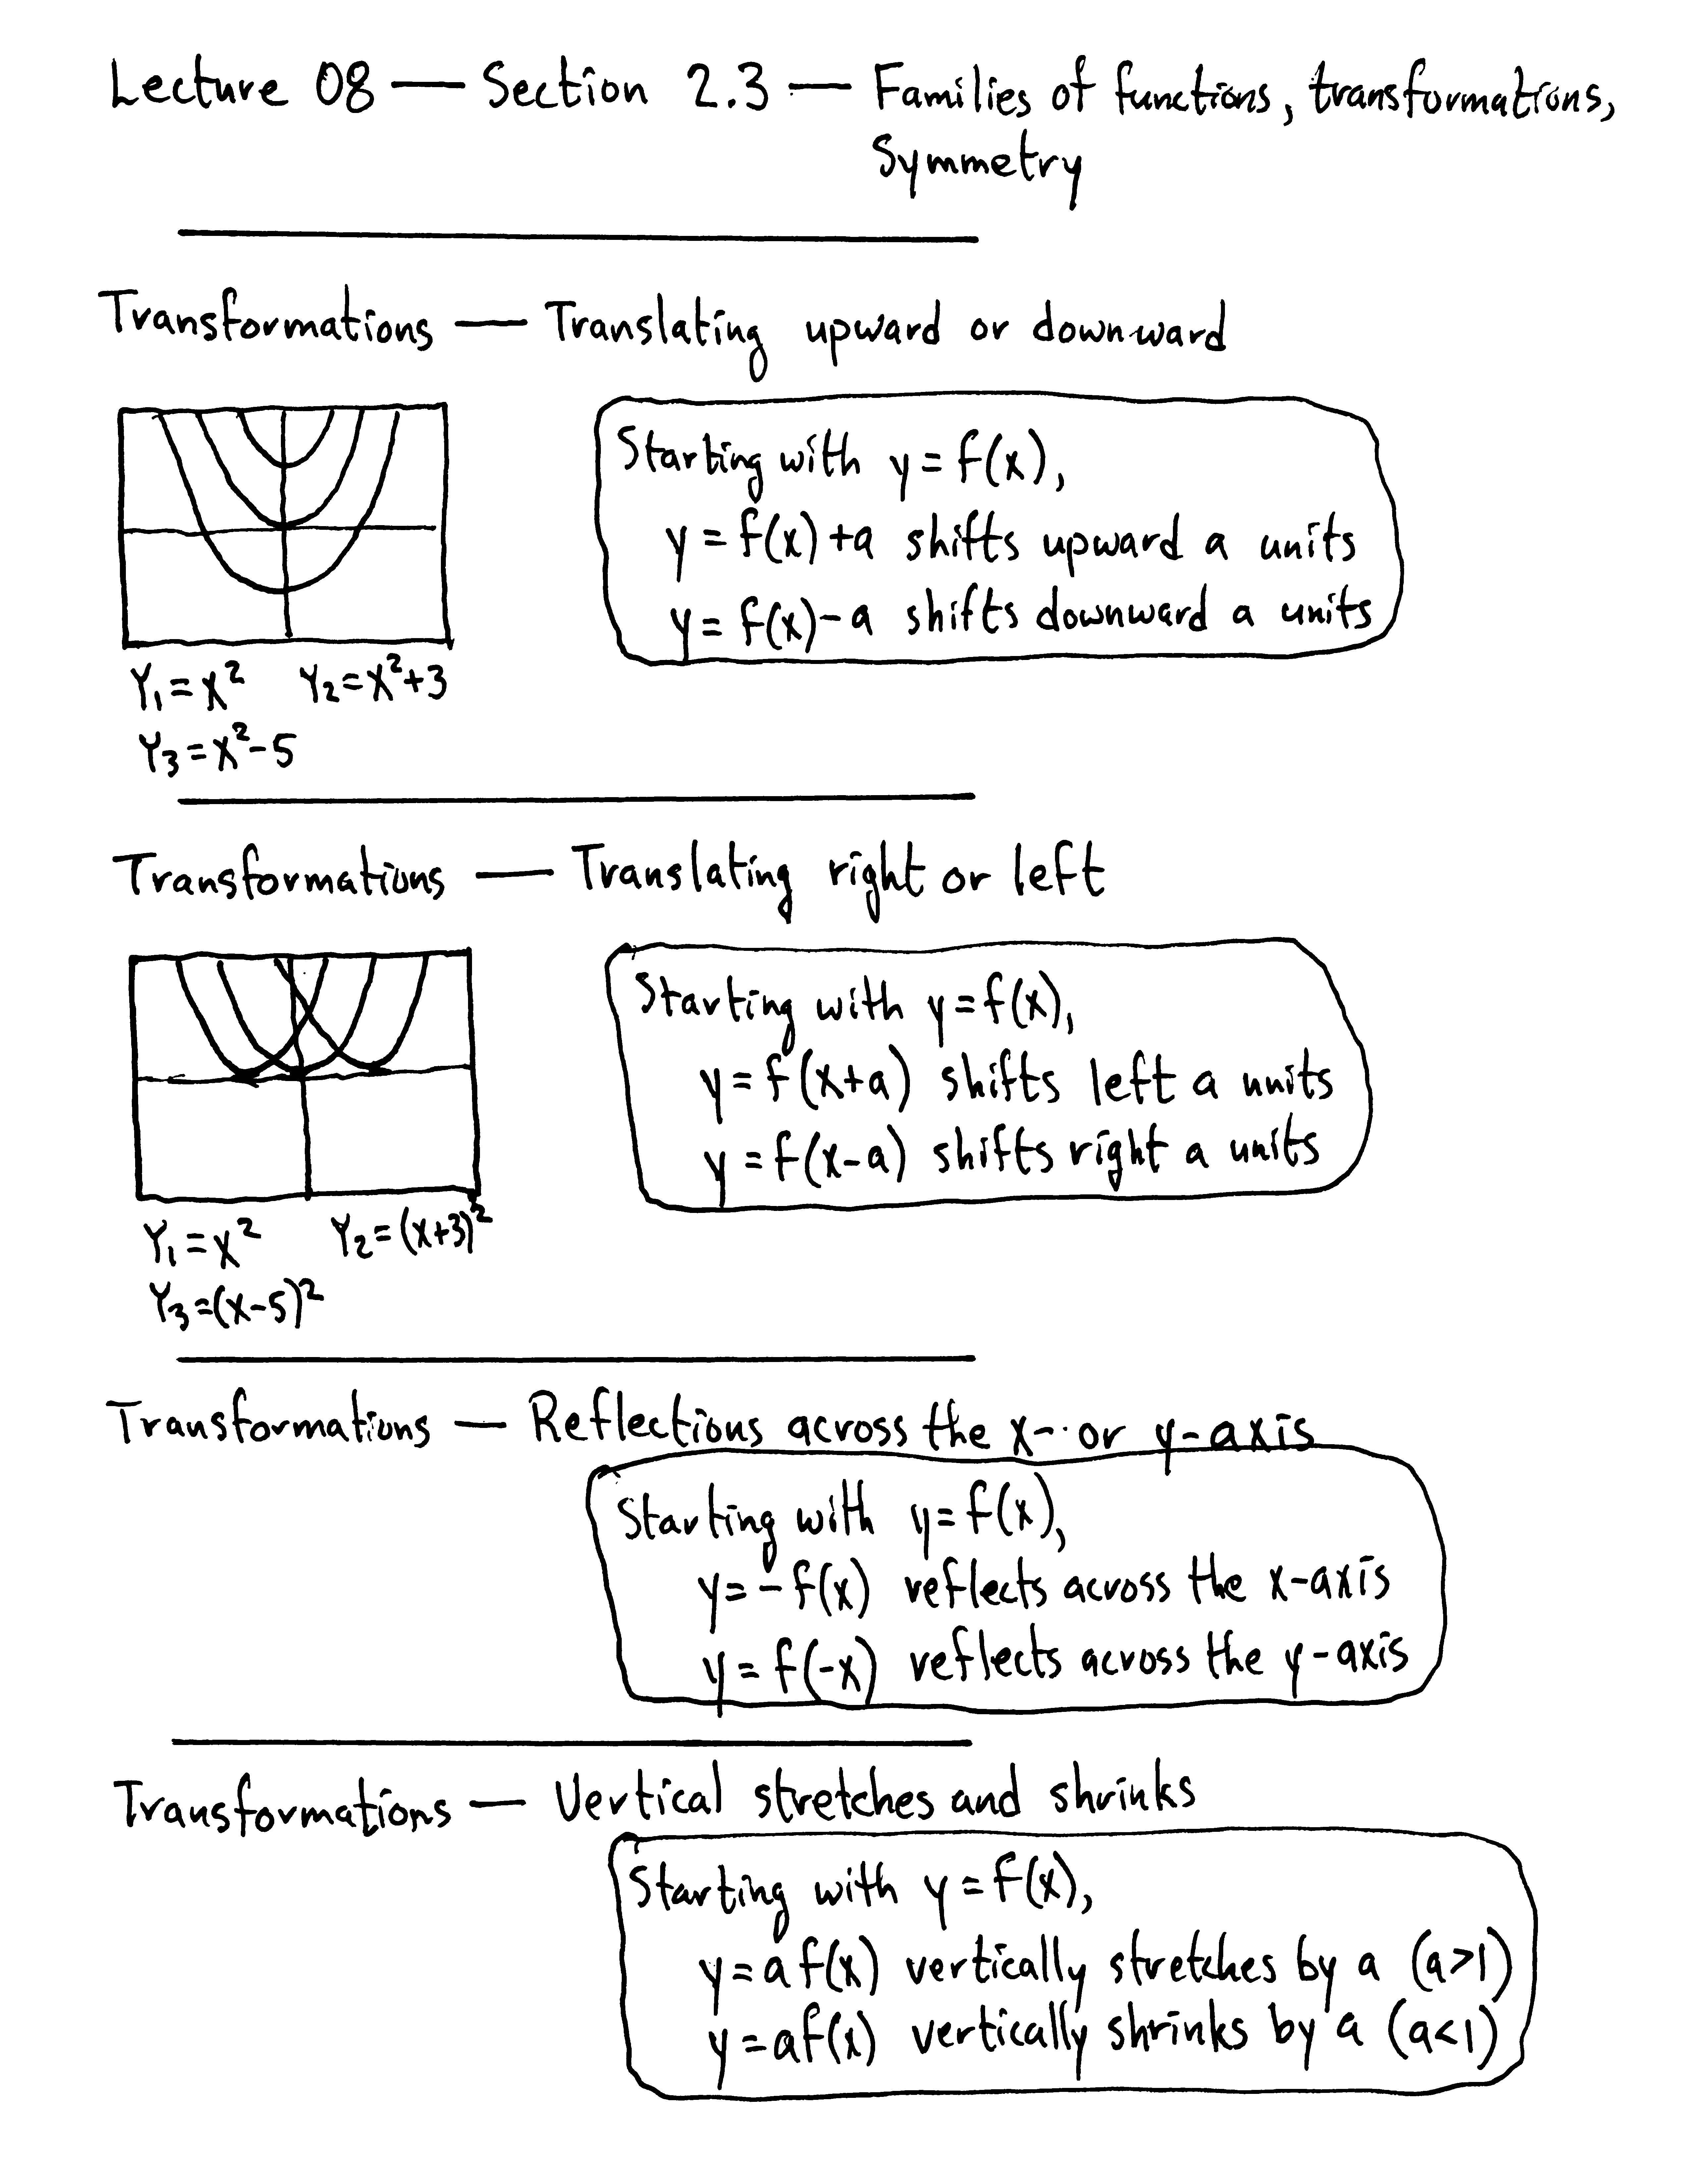 Lecture 08 — Section 2.3 — Families of functions, transformations,
Symmetry
Transformations — Translating upward or downward
Starting with y = f(x),
y = f(x) + a shifts upward a units
y = f(x) - a shifts downward a units
Y₁ = x² Y₂ = x² + 3
Y₃ = x² - 5
Transformations — Translating right or left
Starting with y = f(x),
y = f(x+a) shifts left a units
y = f(x-a) shifts right a units
Y₁ = x² Y₂ = (x+3)²
Y₃ = (x-5)²
Transformations — Reflections across the x- or y-axis
Starting with y = f(x),
y = -f(x) reflects across the x-axis
y = f(-x) reflects across the y-axis
Transformations — Vertical stretches and shrinks
Starting with y = f(x),
y = a f(x) vertically stretches by a (a>1)
y = af(x) vertically shrinks by a (a<1)